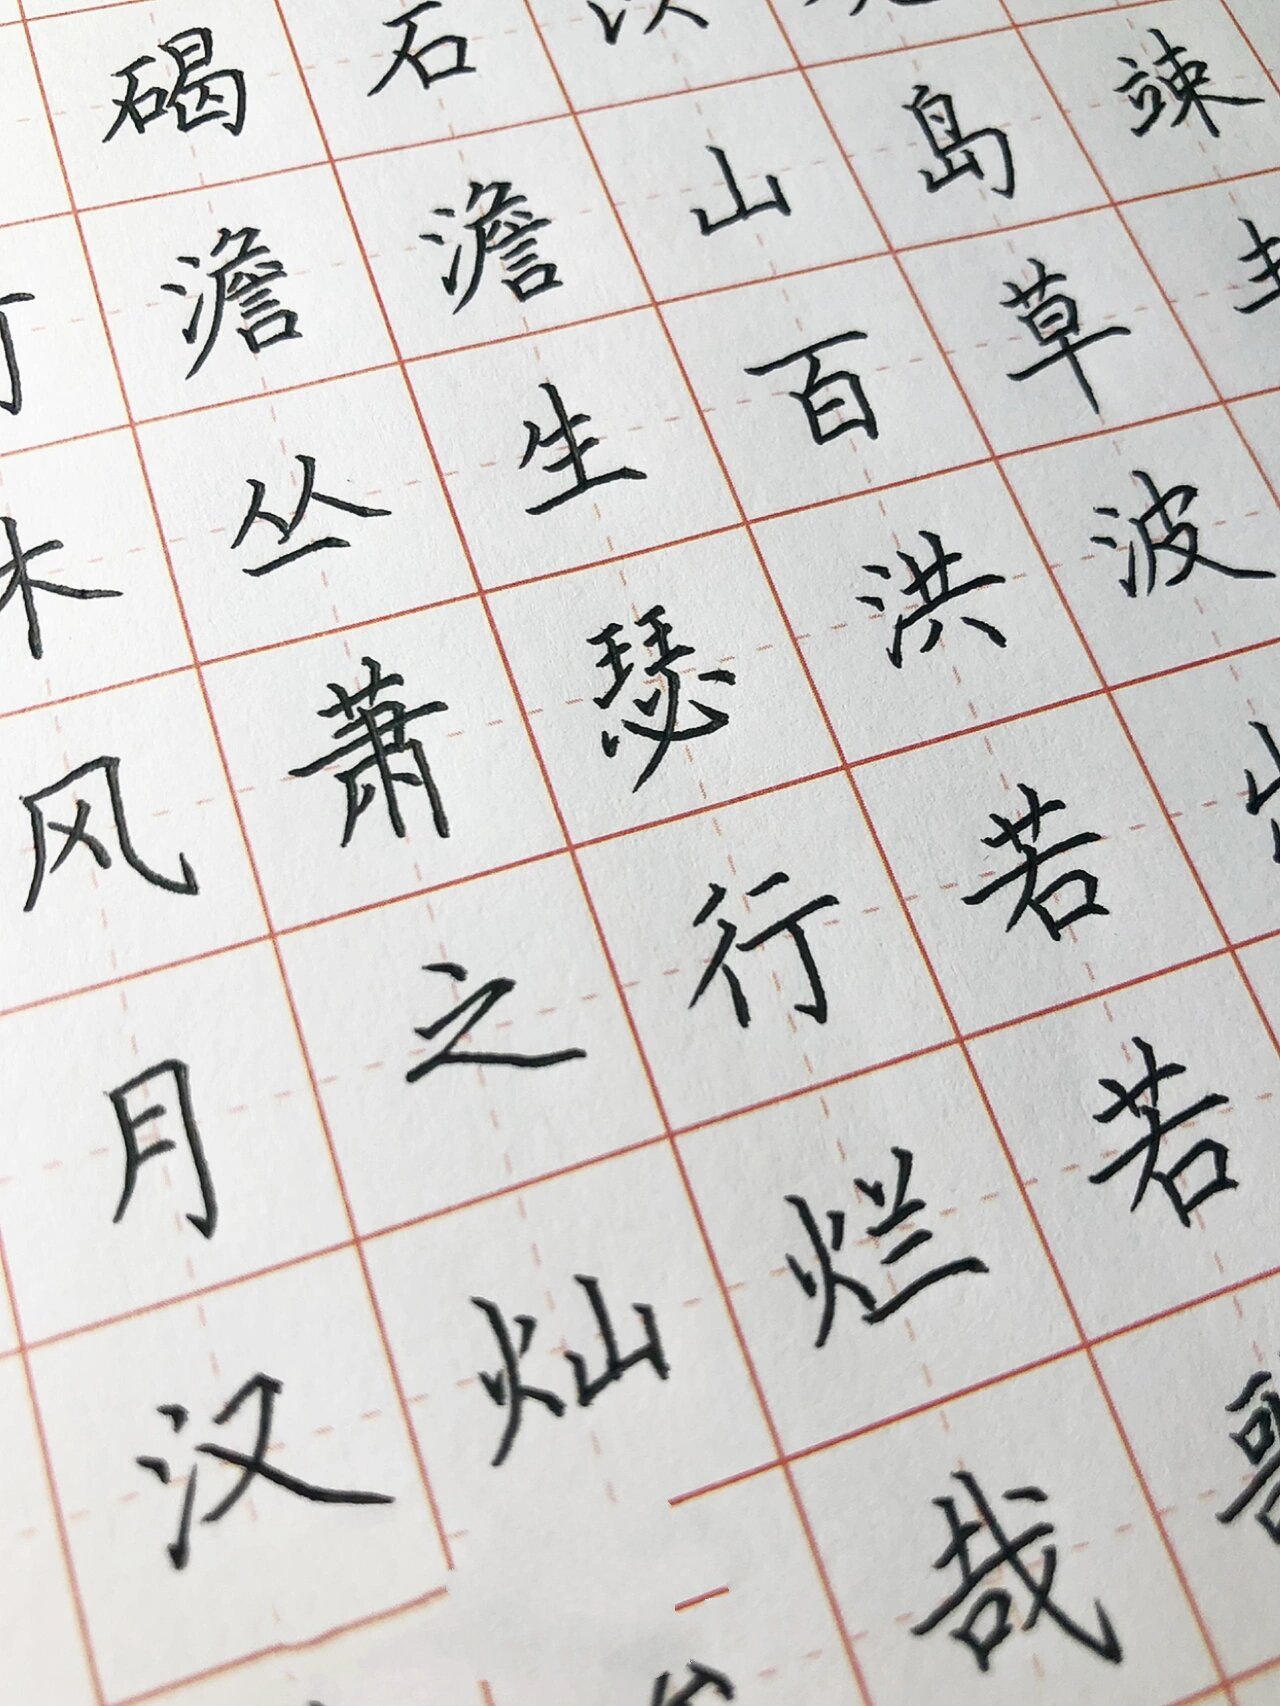 碣石
澹澹山岛竦
木丛生百草
风萧瑟洪波
月之行若
汉灿烂若
哉